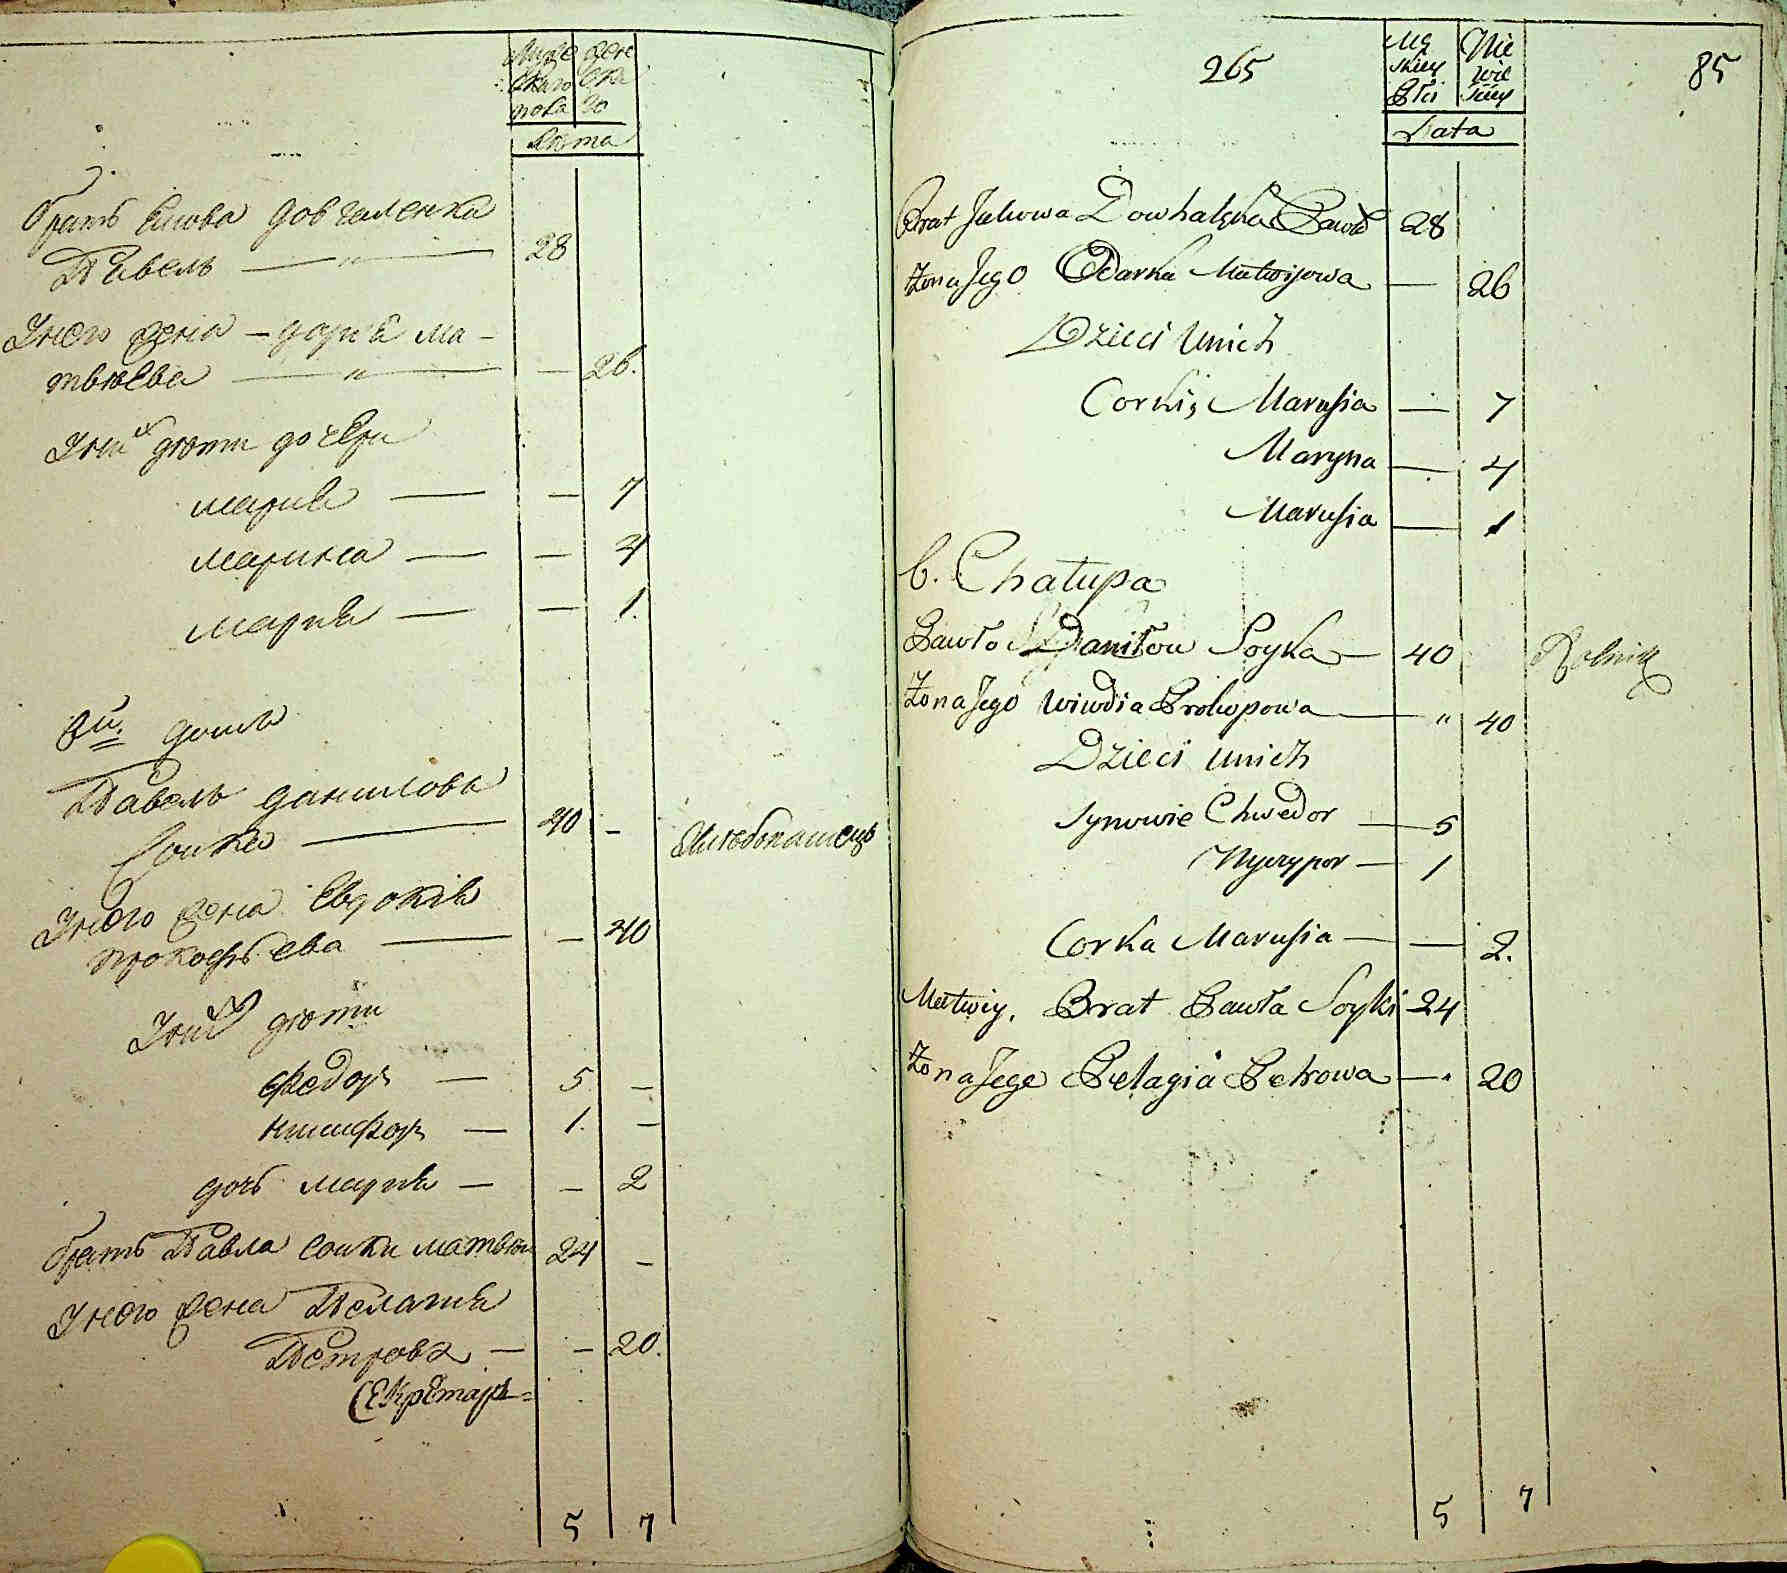 Муже
скаго
пола
женс
ска
го
Лѣта
братъ Якова Довгаленка
Павелъ — " — 28
У него жена – Дарїя Ма-
твѣева — " — — 26.
У них дѣти дочери
Марїя — — 7
Марина — — 4
Марїя — — 1.
8й. домъ
Павелъ Даниловъ
Сойка — 40 – Хлебопашецъ
У него жена Евдокїя
Прокофьева — — 40
У них дѣти
Федоръ — 5 –
Никифоръ — 1. –
дочь Марїя — – 2
братъ Павла Сойки Матвей 24 –
У него жена Пелагия
Петрова — – 20.
Секретарь
5 7
265
Mę
skiey
Płci
Nie
wie
sciey
85
Lata
Brat Jakowa Dowhalęka Pawło 28
Żona Jego Odarka Matwijowa — 26
Dzieci Unich
Corki, Marusia — 7
Maryna — 4
Marusia — 1
8. Chałupa
Pawło Daniłow Soyka — 40 Rolnik
Żona Jego Wiwdia Prokopowa — " 40
Dzieci Unich
Synowie Chwedor — 5
Nyczypor — 1
Corka Marusia — — 2.
Matwiy, Brat Pawła Soyki 24
Żona Jego Pelagia Petrowa — 20
5 7